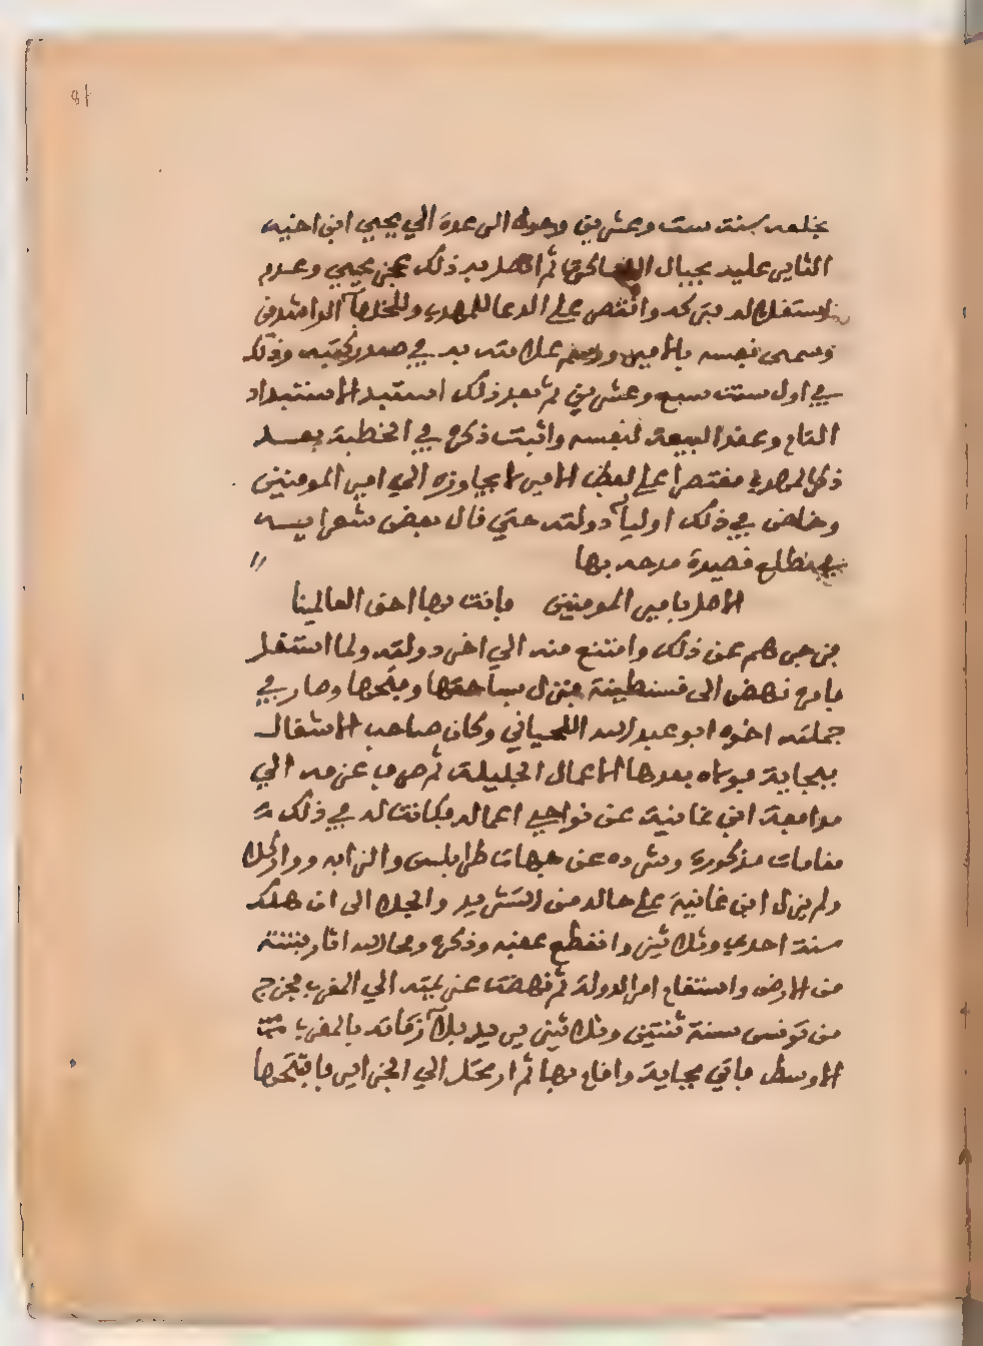 بخلعه سنة ست وعشرين وحوله الى دعوة الي يحيى ابن اخيه
الثاير عليه بجبال الهساكرة ثم اتصل به ذلك عجز يحيي وعدم
استقلاله فترك وانتصر علي الدعا للمهدي وللخلفآ الراشدين
وسمى نفسه بالامير ورسم علامته به في صدر كتبه وذلك
في اول سنت سبع وعشرين ثم بعد ذلك استبد الاستبداد
التام وعقد البيعة لنفسه واثبت ذكره في الخطبة بعد
ذكر المهدي مقتصرا علي لفظ الامير لا يجاوزه الي امير المومنين
وخاض في ذلك اوليآ دولته حتي قال بعض شعرايه
في مطلع قصيدة مدحه بها
الا صل بامير المومنين فانت بها احق العالمينا
فزجرهم عن ذلك وامتنع منه الي اخر دولته ولما استقل
بامره نهض الى قسنطينة فنزل بساحتها وفتحها وصار في
جملته اخوه ابو عبد الله اللحياني وكان صاحب الاشغال
ببجاية فولاه بعدها الاعمال الجليلة ثم صرف عزمه الي
مدافعة ابن غانية عن نواحي اعماله فكانت له في ذلك
مقامات مذكورة وشرده عن جهات طرابلس والزاب ووارجلا
ولم يزل ابن غانية علي حاله من التشريد والجلا الى ان هلك
سنة احدي وثلاثين وانقطع عقبه وذكره ومحا الله اثار فتنته
من الارض واستقام امر الدولة ثم نهضت عزيمته الي المغرب فخرج
من تونس سنة ثنتين وثلاثين يريد بلآ زناتة بالمغرب
الاوسط فاتي بجاية واقام بها ثم ارتحل الي الجزاير فافتتحها